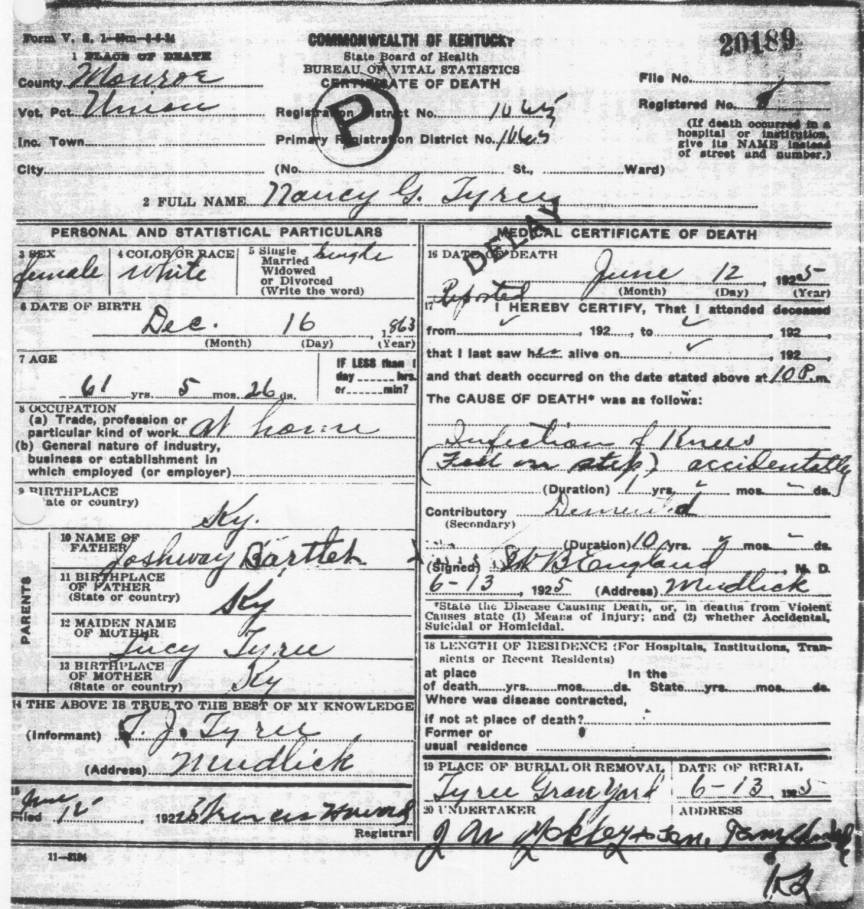 Form V. S. 1
COMMONWEALTH OF KENTUCKY
20189
1 PLACE OF DEATH
State Board of Health
BUREAU OF VITAL STATISTICS
County Monroe
CERTIFICATE OF DEATH
File No.
Vot. Pct. Union
Registration District No. 1065
Registered No.
P
(If death occurred in a hospital or institution, give its NAME instead of street and number.)
Inc. Town
Primary Registration District No. 1065
City (No. St., Ward)
2 FULL NAME Nancy G. Tyree
PERSONAL AND STATISTICAL PARTICULARS
3 SEX
female
4 COLOR OR RACE
White
5 Single
Married
Widowed
or Divorced
(Write the word)
Single
6 DATE OF BIRTH
Dec. 16 1863
(Month) (Day) (Year)
7 AGE
61 yrs. 5 mos. 26 ds.
IF LESS than 1
day hrs.
or min?
8 OCCUPATION
(a) Trade, profession or
particular kind of work at home
(b) General nature of industry,
business or establishment in
which employed (or employer)
9 BIRTHPLACE
(State or country)
Ky.
PARENTS
10 NAME OF
FATHER Joshway Bartlet
11 BIRTHPLACE
OF FATHER
(State or country) Ky
12 MAIDEN NAME
OF MOTHER
Lucy Tyree
13 BIRTHPLACE
OF MOTHER
(State or country) Ky
14 THE ABOVE IS TRUE TO THE BEST OF MY KNOWLEDGE
(Informant) T. J. Tyree
(Address) Mudlick
15
Filed June 192
Registrar
11—3184
MEDICAL CERTIFICATE OF DEATH
DELAY
Reported
16 DATE OF DEATH
June 12 1925
(Month) (Day) (Year)
17 I HEREBY CERTIFY, That I attended deceased
from , 192 , to , 192 ,
that I last saw her alive on , 192 ,
and that death occurred on the date stated above at 10 P. m.
The CAUSE OF DEATH* was as follows:
Infection of Knees
(Fell on step) accidentally
(Duration) yrs. mos. ds.
Contributory
(Secondary)
(Duration) 10 yrs. mos. ds.
(Signed) England M. D.
6-13, 1925 (Address) Mudlick
*State the Disease Causing Death, or, in deaths from Violent
Causes state (1) Means of Injury; and (2) whether Accidental,
Suicidal or Homicidal.
18 LENGTH OF RESIDENCE (For Hospitals, Institutions, Tran-
sients or Recent Residents)
at place In the
of death yrs. mos. ds. State yrs. mos. ds.
Where was disease contracted,
if not at place of death?
Former or
usual residence
19 PLACE OF BURIAL OR REMOVAL
Tyree Grave Yard
DATE OF BURIAL
6-13, 1925
20 UNDERTAKER
ADDRESS
Ky